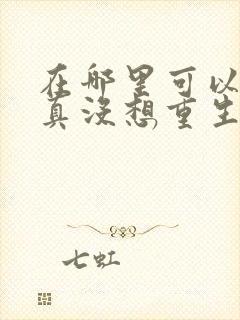 在哪里可以
真没想重生
七虹